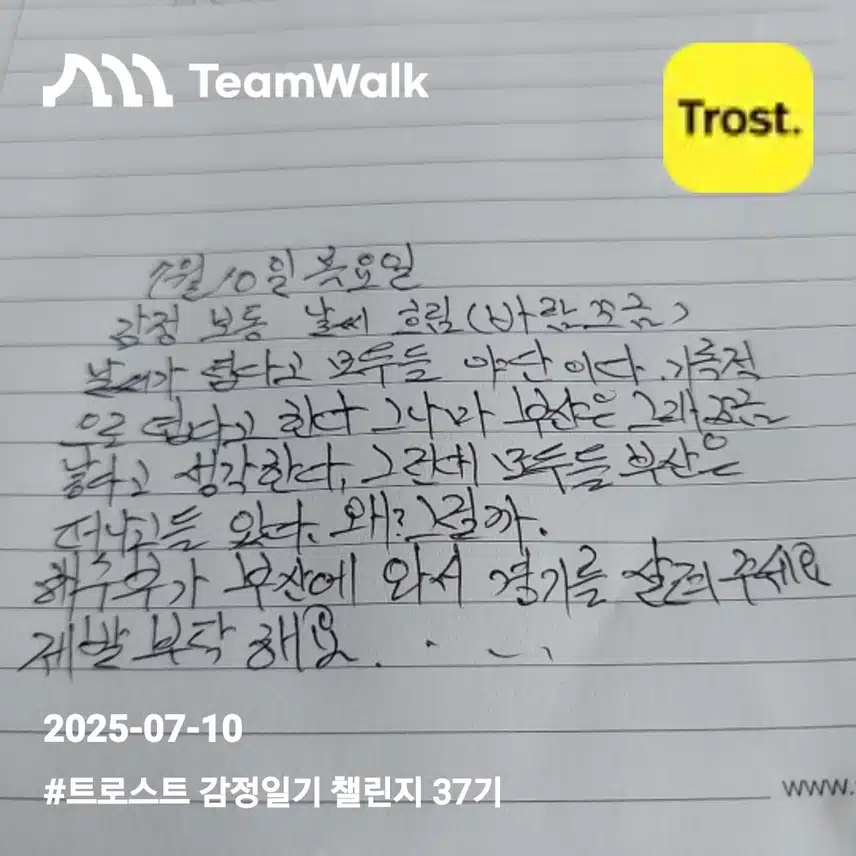 TeamWalk
Trost.
7월 10일 목요일
감정 보통 날씨 흐림(바람조금)
날씨가 덥다고 모두들 야단이다. 기록적
으로 덥다고 한다 그나마 부산은 그래 조금
낳다고 생각한다. 그런데 모두들 부산은
떠나고들 있다. 왜? 그럴까.
해수부가 부산에 와서 경기를 살려주세요
제발 부탁해요.
2025-07-10
#트로스트 감정일기 챌린지 37기
www.